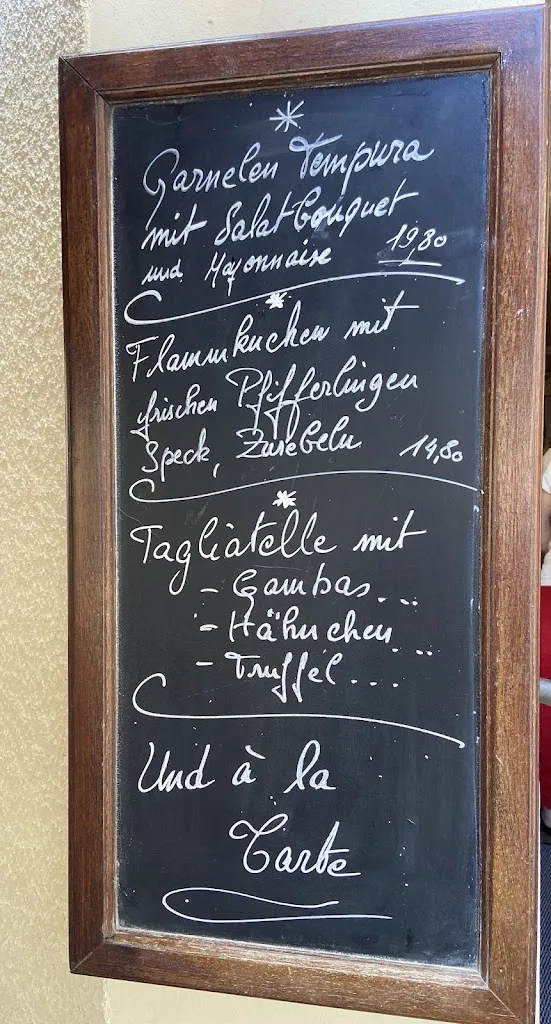 Garnelen Tempura
mit Salatbouquet
und Mayonnaise 19,80
Flammkuchen mit
frischen Pfifferlingen
Speck, Zwiebeln 14,80
Tagliatelle mit
- Gambas...
- Hähnchen...
- Trüffel...
Und à la
Carte